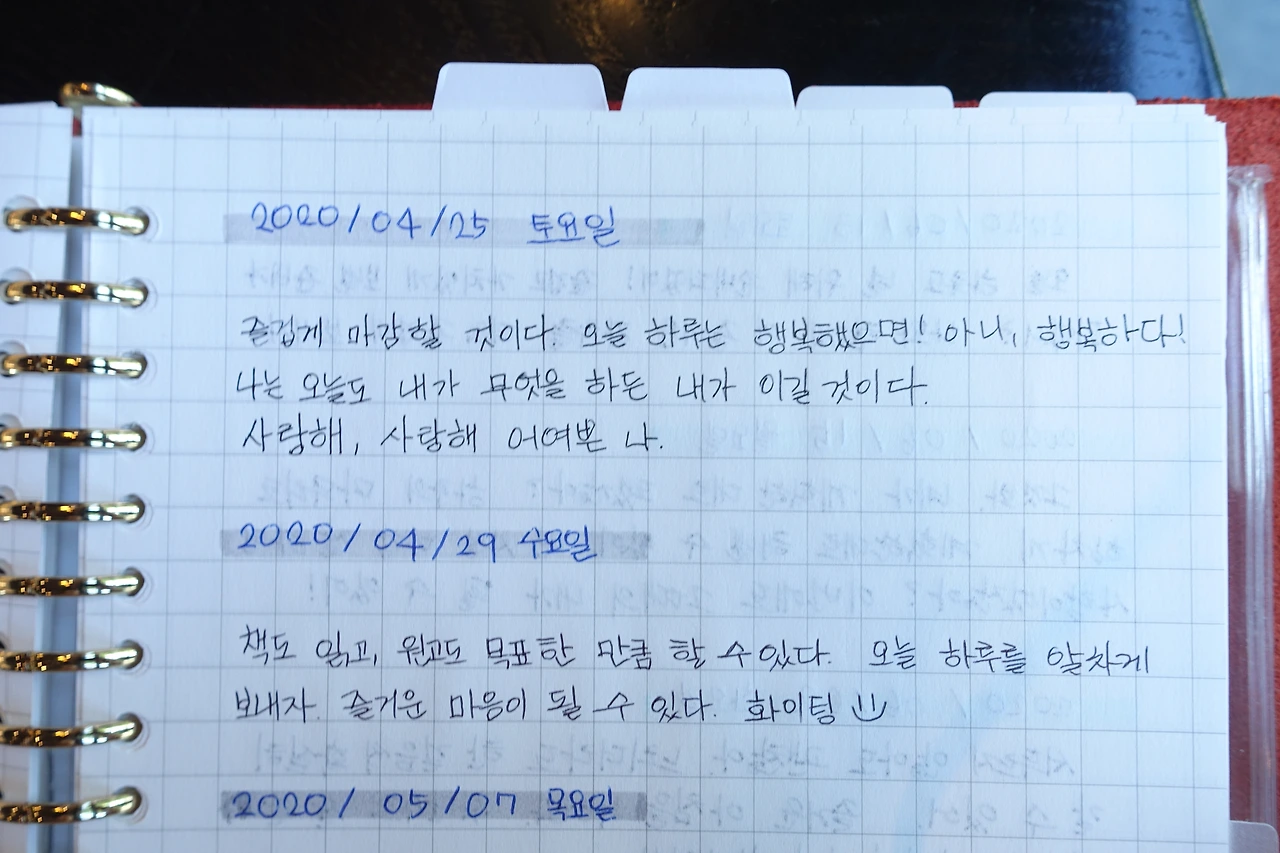 2020/04/25 토요일
즐겁게 마감할 것이다. 오늘 하루는 행복했으면! 아니, 행복하다!
나는 오늘도 내가 무엇을 하든 내가 이길 것이다.
사랑해, 사랑해 어여쁜 나.
2020/04/29 수요일
책도 읽고, 원고도 목표한 만큼 할 수 있다. 오늘 하루를 알차게
보내자. 즐거운 마음이 될 수 있다. 화이팅
2020/05/07 목요일